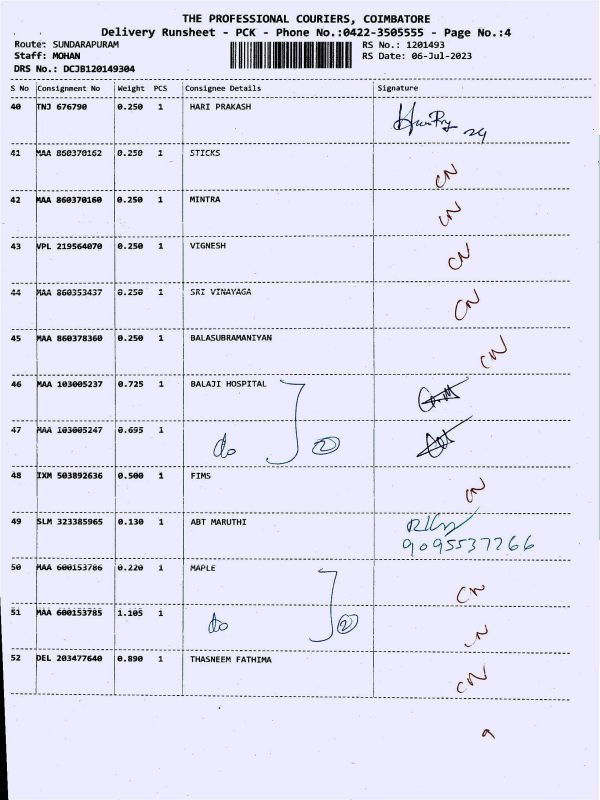 THE PROFESSIONAL COURIERS, COIMBATORE
Delivery Runsheet - PCK - Phone No.:0422-3505555 - Page No.:4
Route: SUNDARAPURAM RS No.: 1201493
Staff: MOHAN RS Date: 06-Jul-2023
DRS No.: DCJB120149304
S No Consignment No Weight PCS Consignee Details Signature
40 TNJ 676790 0.250 1 HARI PRAKASH
41 MAA 860370162 0.250 1 STICKS CN
42 MAA 860370160 0.250 1 MINTRA CN
43 VPL 219564070 0.250 1 VIGNESH CN
44 MAA 860353437 0.250 1 SRI VINAYAGA CN
45 MAA 860378360 0.250 1 BALASUBRAMANIYAN CN
46 MAA 103005237 0.725 1 BALAJI HOSPITAL
47 MAA 103005247 0.695 1 do 2
48 IXM 503892636 0.500 1 FIMS CN
49 SLM 323385965 0.130 1 ABT MARUTHI
9095537266
50 MAA 600153786 0.220 1 MAPLE CN
51 MAA 600153785 1.105 1 do 2
52 DEL 203477640 0.890 1 THASNEEM FATHIMA CN
9